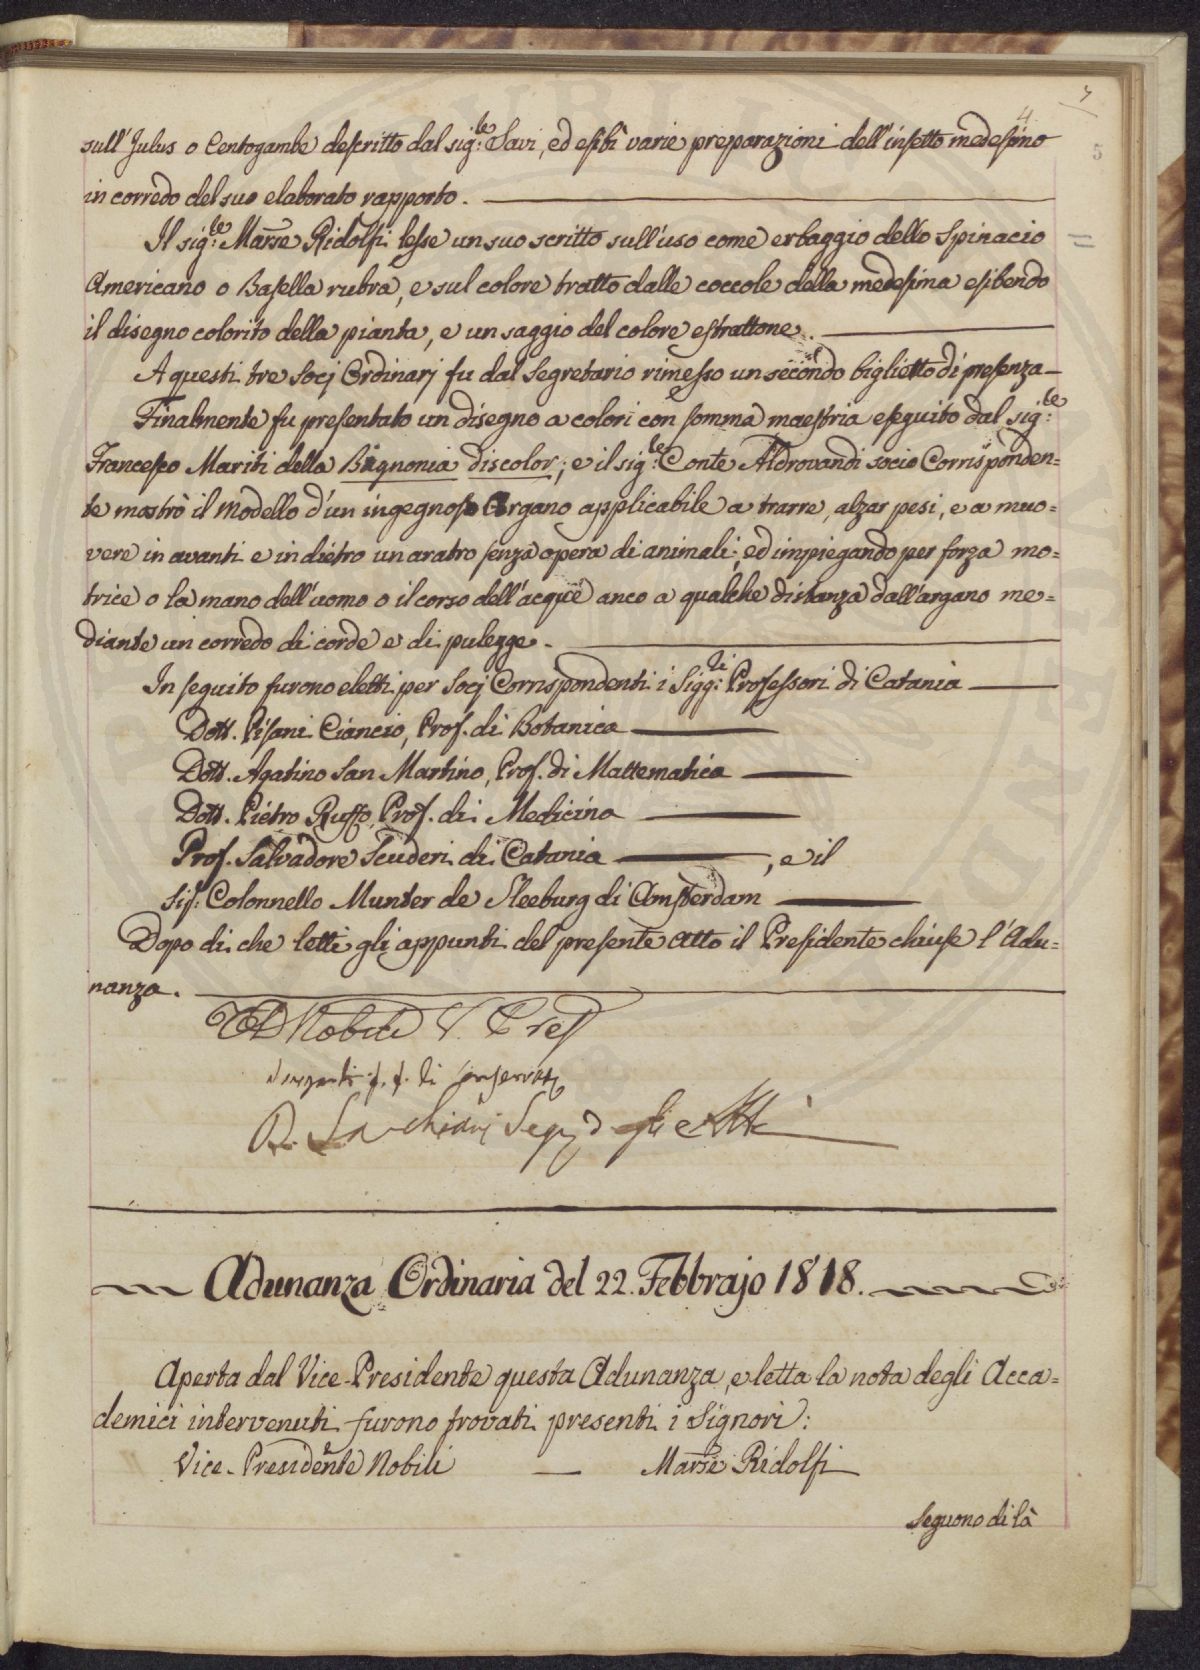 7
4
5
sull'Julus o Centogambe descritto dal sig.le Savi, ed esibì varie preparazioni dell'insetto medesimo
in corredo del suo elaborato rapporto.
Il sig.le Marse Ridolfi lesse un suo scritto sull'uso come erbaggio dello Spinacio
Americano o Basella rubra, e sul colore tratto dalle coccole della medesima esibendo
il disegno colorito della pianta, e un saggio del colore estrattone.
A questi tre Socj Ordinarj fu dal Segretario rimesso un secondo biglietto di presenza
Finalmente fu presentato un disegno a colori con somma maestria eseguito dal sig.le
Francesco Mariti della Bignonia discolor; e il sig.le Conte Aldrovandi socio Corrisponden=
te mostrò il modello d'un ingegnoso Argano applicabile a trarre, alzar pesi, e a muo=
vere in avanti e in dietro un aratro senza opera di animali; ed impiegando per forza mo=
trice o la mano dell'uomo o il corso dell'acque anco a qualche distanza dall'argano me=
diante un corredo di corde e di pulegge.
In seguito furono eletti per Socj Corrispondenti i Sigg.ri Professori di Catania
Dott. Pisani Ciancio, Prof. di Botanica
Dott. Agatino San Martino, Prof. di Mattematica
Dott. Pietro Ruffo, Prof. di Medicina
Prof. Salvadore Scuderi di Catania, e il
Sig. Colonnello Munter de Sleeburg di Amsterdam
Dopo di che letti gli appunti del presente Atto il Presidente chiuse l'Adu=
nanza.
Nobili V. Pres
f. f. di Conservat
Segr. degli Atti
Adunanza Ordinaria del 22. Febbrajo 1818.
Aperta dal Vice-Presidente questa Adunanza, e letta la nota degli Acca=
demici intervenuti furono trovati presenti i Signori:
Vice-Presidente Nobili — Marse Ridolfi
Seguono di là